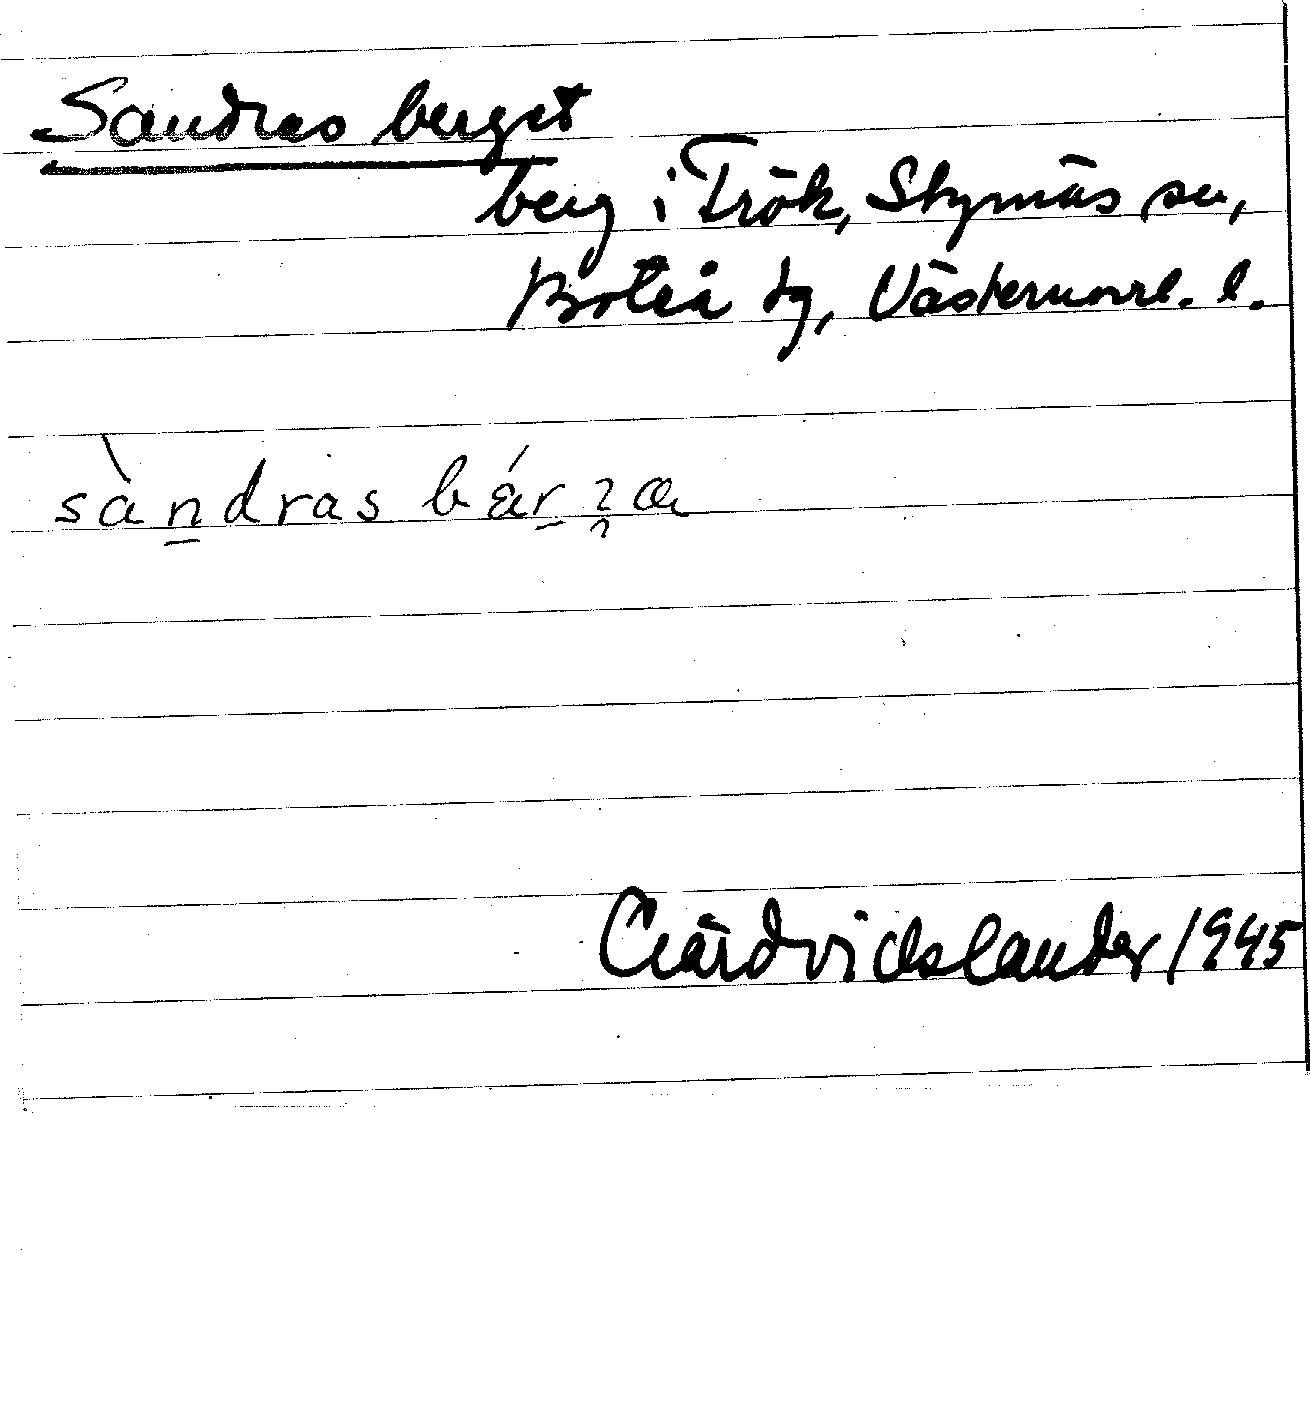 Sandras berget
berg i Trök, Styrnäs sn,
Boteå tg, Västernorrl. l.
sàn̲dras bǽr̲ʒæ
1945